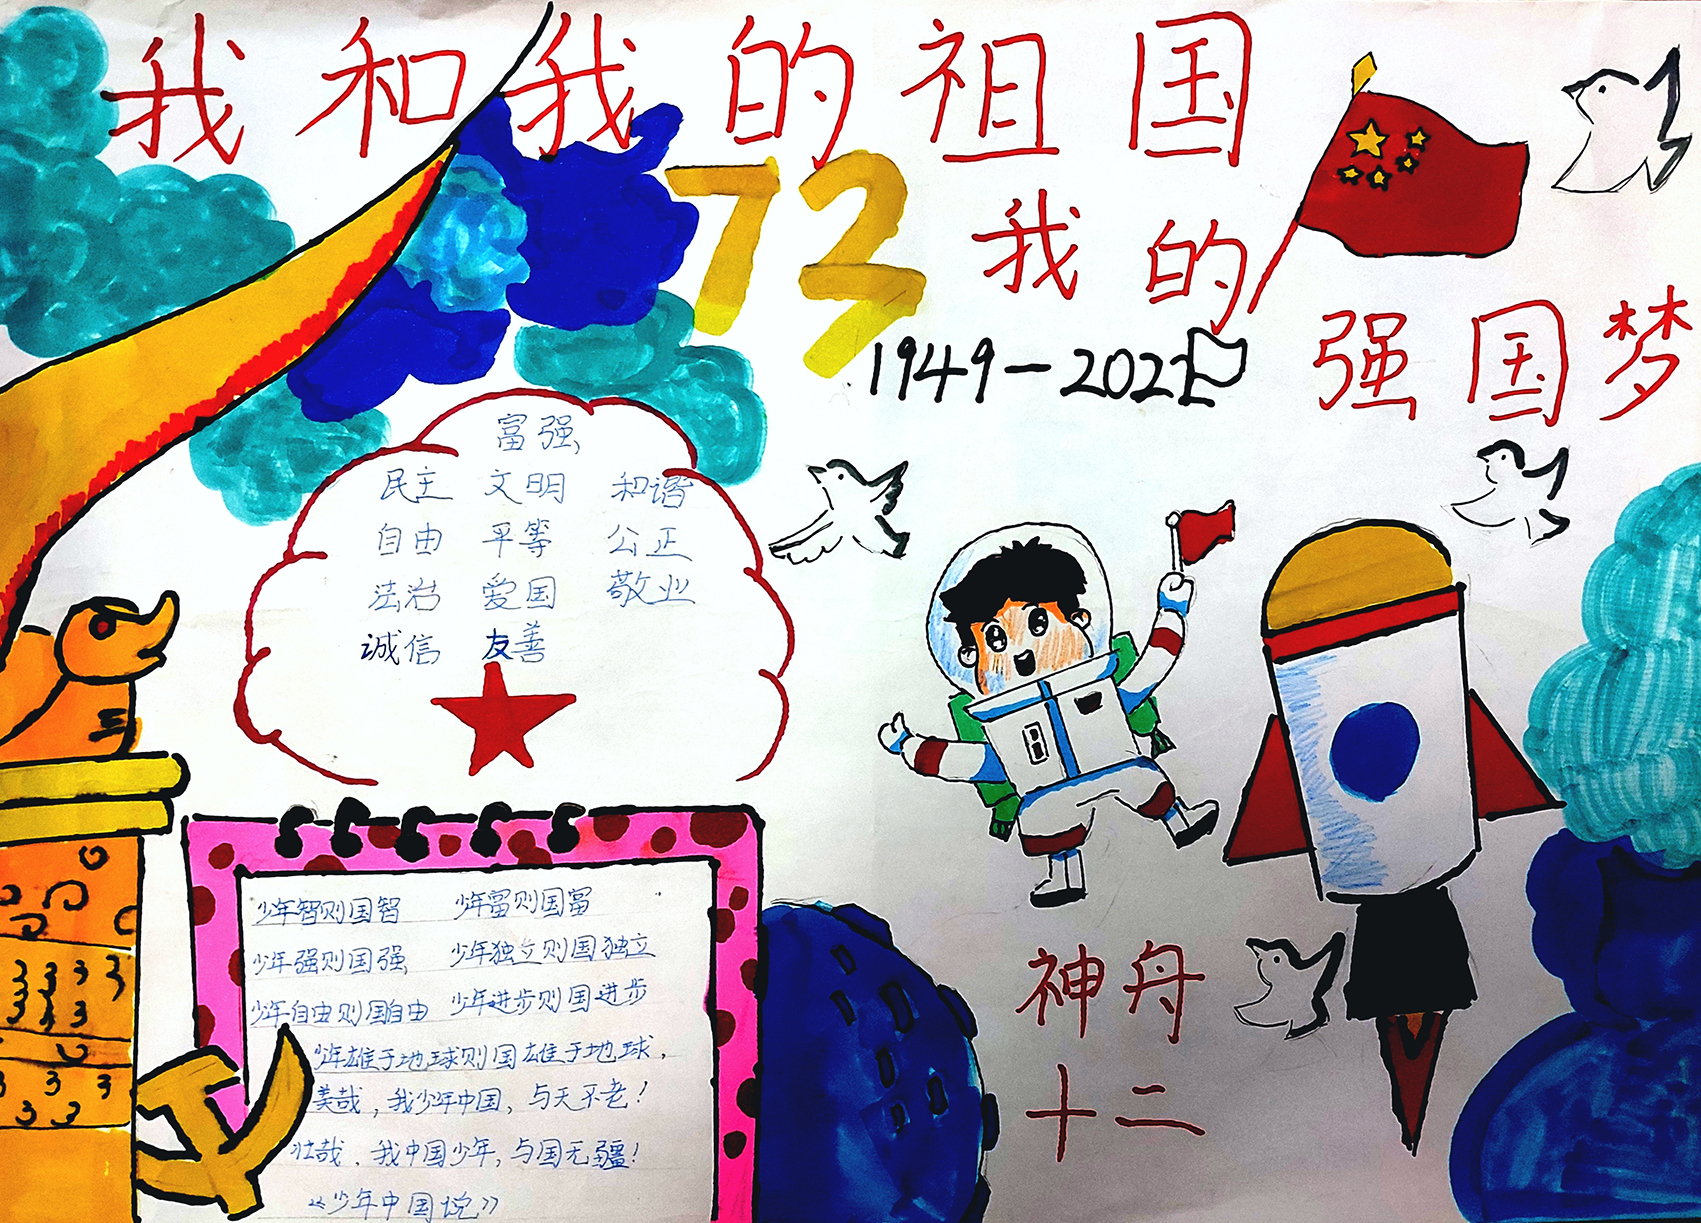 我和我的祖国
72
我的
强国梦
1949-2021
富强
民主 文明 和谐
自由 平等 公正
法治 爱国 敬业
诚信 友善
少年智则国智 少年富则国富
少年强则国强 少年独立则国独立
少年自由则国自由 少年进步则国进步
少年雄于地球则国雄于地球，
美哉，我少年中国，与天不老！
壮哉，我中国少年，与国无疆！
《少年中国说》
神舟
十二